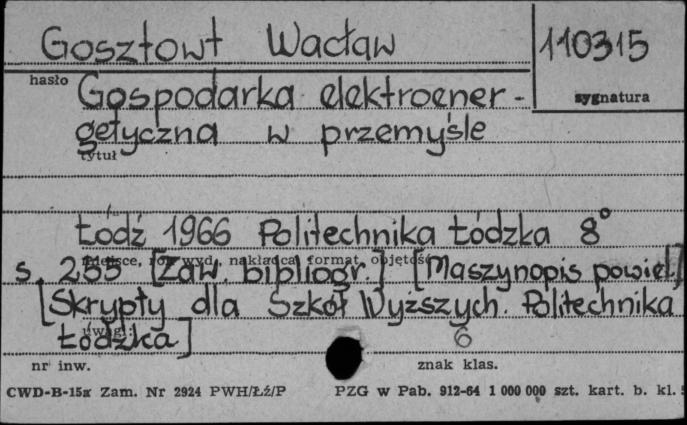 Gosztowt Wacław
110315
hasło
sygnatura
Gospodarka elektroener-
getyczna w przemyśle
tytuł
Łódź 1966 Politechnika Łódzka 8°
miejsce, rok wyd., nakładca, format, objętość
s. 255 [Zaw. bibliogr.] [Maszynopis powiel.]
[Skrypty dla Szkół Wyższych. Politechnika
uwagi:
Łódzka]
6
nr inw.
znak klas.
CWD-B-15a Zam. Nr 2924 PWH/Łź/P PZG w Pab. 912-64 1 000 000 szt. kart. b. kl.